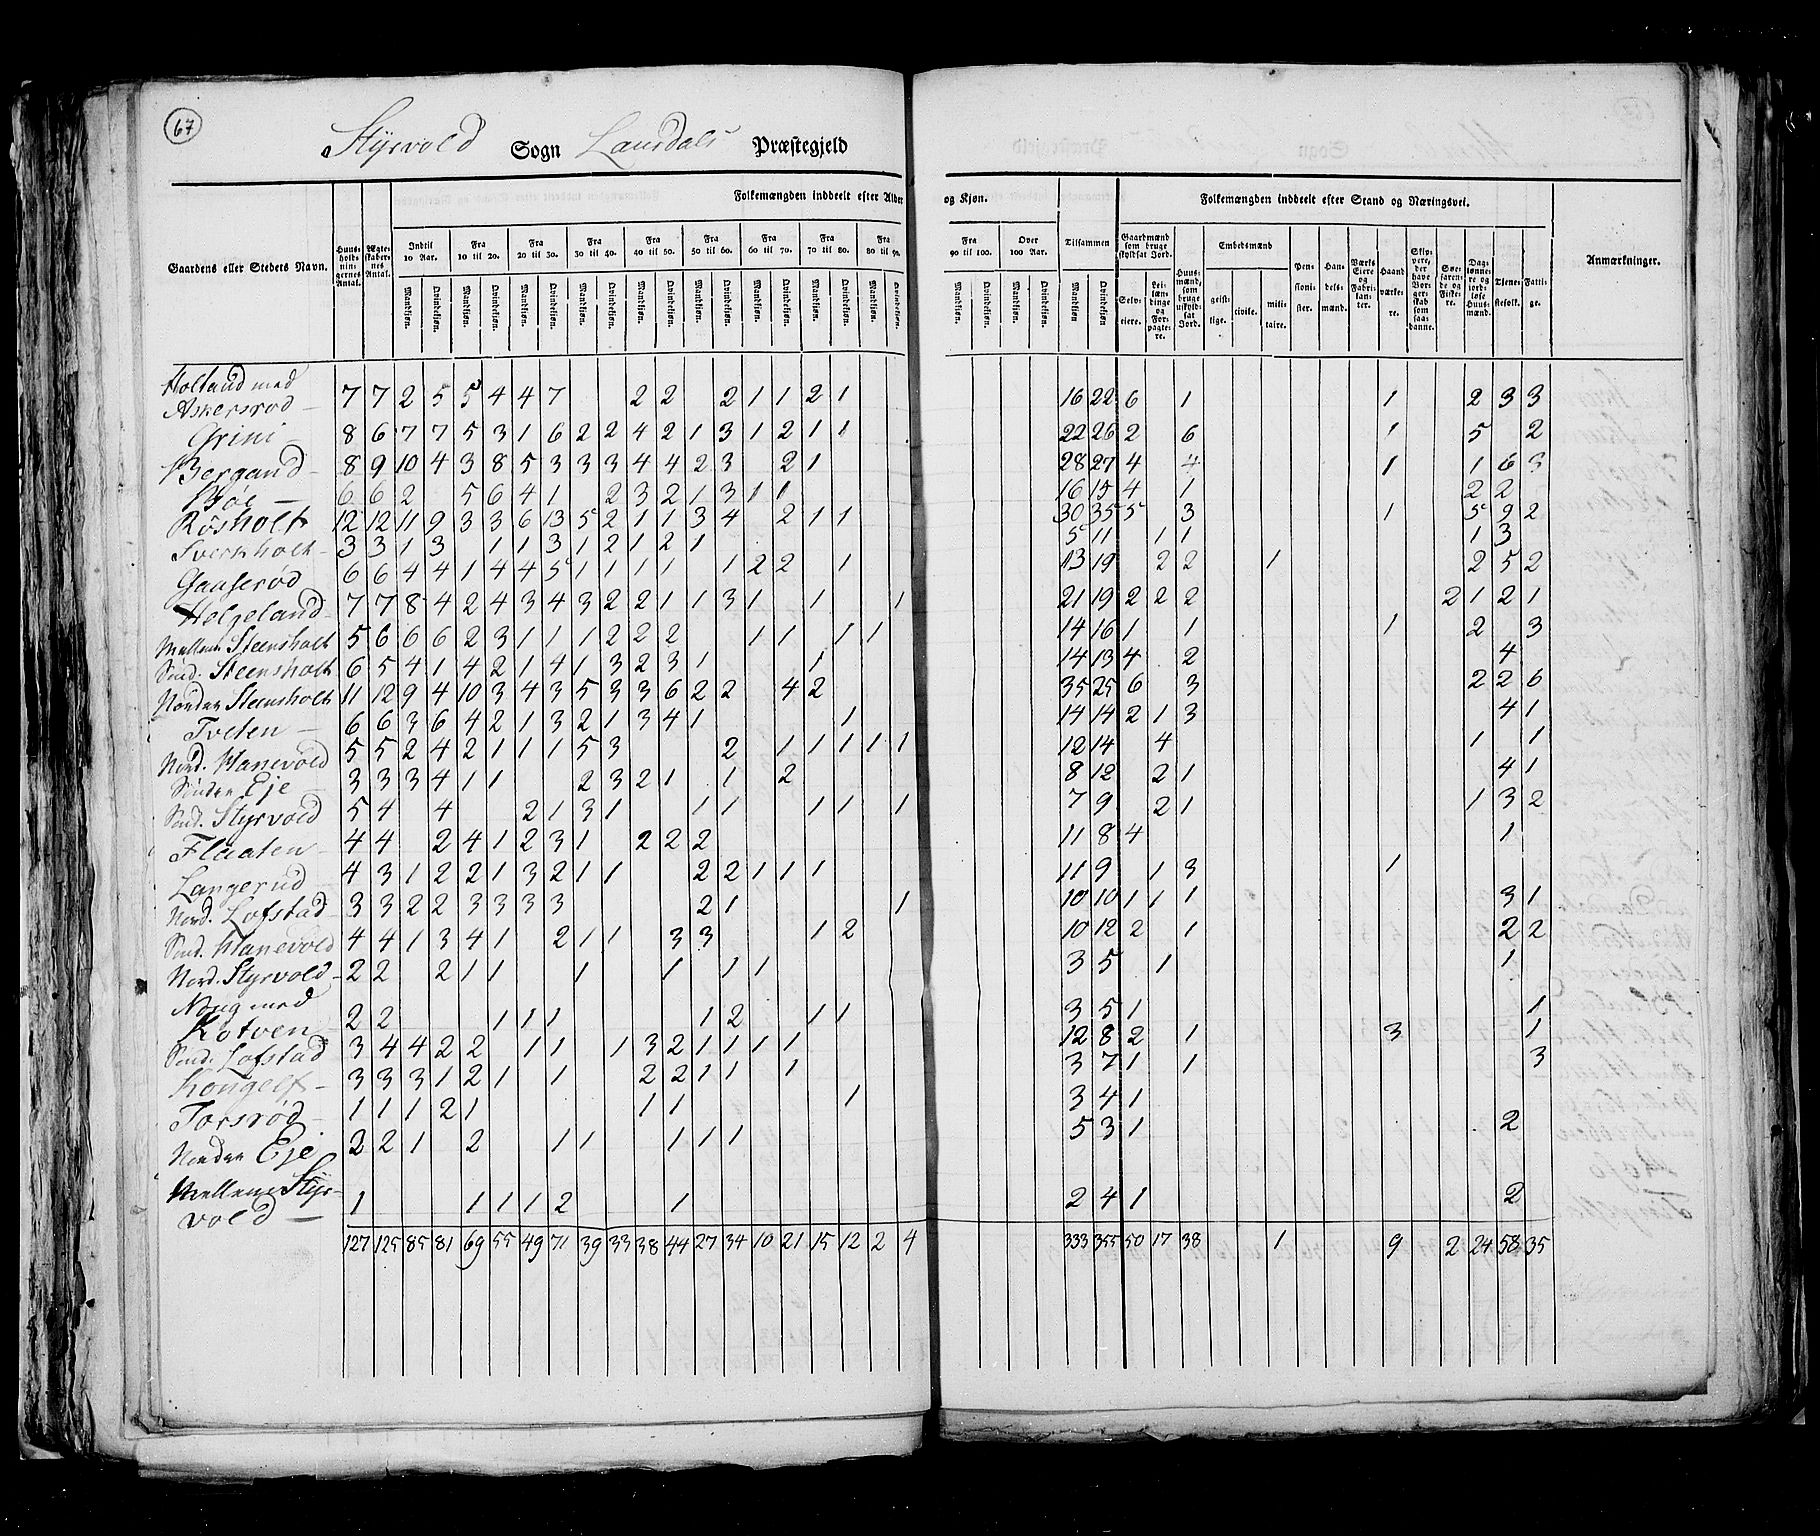 67
Styrvold Sogn Laurdals Præstegjeld
Gaardens eller Stedets Navn.
Huus-holdningernes Antal.
Ægteskabernes Antal.
Folkemængden inddeelt efter Alder og Kjøn.
Indtil 10 Aar. Fra 10 til 20. Fra 20 til 30. Fra 30 til 40. Fra 40 til 50. Fra 50 til 60. Fra 60 til 70. Fra 70 til 80. Fra 80 til 90. Fra 90 til 100. Over 100 Aar. Tilsammen
Mandkjøn. Qvindekjøn.
Folkemængden inddeelt efter Stand og Næringsvei.
Gaardmænd som bruge skyldsat Jord.
Selveiere. Leilændinge og Forpagtere.
Huusmænd, som bruge uskyldsat Jord.
Embedsmænd
geistlige. civile. militaire.
Pensionister. Handelsmænd. Værks Eiere og Fabrikanter. Haandværkere. Skippere, der have Borgerskab som saadanne. Søefarende og Fiskere. Dagslønnere og jordløse Huusmænd. Tjenestefolk. Fattige.
Anmærkninger.
Holtand med
Askersrod 7 7 2 5 5 4 4 7 2 2 2 1 1 2 1 16 22 6 1 1 2 3 3
Grini 8 6 7 7 5 3 1 6 2 2 4 2 1 3 1 2 1 1 22 26 2 6 1 5 2
Bergand 8 9 10 4 3 8 5 3 3 3 4 4 2 3 2 1 28 27 4 4 1 1 6 3
Bøe 6 6 2 5 6 4 1 2 3 2 1 3 1 1 16 15 4 1 2 2
Røsholt 12 12 11 9 3 3 6 13 5 2 1 1 3 4 2 1 1 30 35 5 3 1 5 9 2
Sverkholt 3 3 1 3 1 1 3 1 2 1 2 1 5 11 1 1 1 3
Gaaserød 6 6 4 4 1 4 4 5 1 1 1 1 1 2 2 1 13 19 2 2 1 2 5 2
Helgeland 7 7 8 4 2 4 3 4 3 2 2 1 1 3 1 1 1 21 19 2 2 2 2 1 2 1
Mellem Steensholt 5 6 6 6 2 3 1 1 1 2 2 2 1 1 1 1 14 16 1 1 1 2 3
Sönd. Steensholt 6 5 4 1 4 2 1 4 1 3 2 3 1 1 14 13 4 2 4
Nordre Steensholt 11 12 9 4 10 3 4 3 5 3 3 6 2 2 4 2 35 25 6 3 2 2 6
Tveten 6 6 3 6 4 2 1 3 2 1 3 4 1 1 14 14 2 1 3 4 1
Nord. Hanevold 5 5 2 4 2 1 1 1 5 3 2 1 1 1 1 1 12 14 4 1 1
Söndre Eje 3 3 3 4 1 1 2 3 2 1 1 2 8 12 2 1 4 1
Sönd. Styrvold 5 4 4 2 1 3 1 1 1 1 1 1 7 9 2 1 1 3 2
Flaaten 4 4 2 4 1 2 3 1 2 2 2 11 8 4 1
Langerud 4 3 1 2 2 1 3 2 1 1 2 2 1 1 1 11 9 1 3 1
Nord. Lofstad 3 3 2 2 3 3 3 3 2 1 1 10 10 1 1 1 3 1
Sönd. Hanevold 4 4 1 3 4 1 2 1 1 3 3 1 2 10 12 2 1 2 2
Nord. Styrvold 2 2 2 1 1 1 1 1 1 3 5 1 1
Noug med
Kotven 2 2 1 1 1 1 2 1 1 3 5 1 1
Sönd. Lofstad 3 4 4 2 2 1 1 1 3 2 1 1 1 1 12 8 2 1 3 1
Kongelf 3 3 3 1 2 1 1 2 2 1 1 1 3 7 1 1 3
Torsrød 1 1 1 2 1 1 1 1 3 4 1
Nordre Eje 2 2 1 2 1 1 1 1 1 5 3 1 2
Mellem Styrvold 1 1 1 1 2 1 2 4 1 2
127 125 85 81 69 55 49 71 39 33 38 44 27 34 10 21 15 12 2 4 333 355 50 17 38 1 9 2 24 58 35